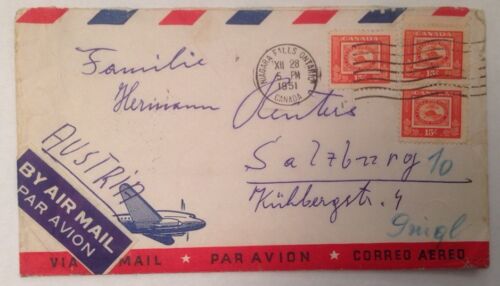 CANADA
15¢
CANADA
15¢
CANADA
15¢
NIAGARA FALLS ONTARIO
XII 28
5 PM
1951
CANADA
Familie
Hermann
Salzburg 10
Kühbergstr. 4
Gnigl
AUSTRIA
BY AIR MAIL
PAR AVION
VIA MAIL ★ PAR AVION ★ CORREO AEREO